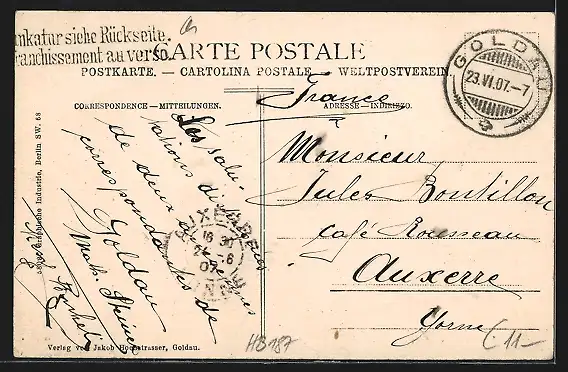 nkatur siehe Rückseite.
ranchissement au verso.
CARTE POSTALE
POSTKARTE. — CARTOLINA POSTALE — WELTPOSTVEREIN
GOLDAU
23.VI.07.-7
France
CORRESPONDENCE — MITTEILUNGEN.
ADRESSE — INDIRIZZO.
Les salu-
tations
de deux
correspondantes de
Goldau
Monsieur
Jules Boutillon
Café Rousseau
Auxerre
Yonne
AUXERRE
16 30
24 -6
07
YONNE
Graphische Industrie, Berlin SW. 68
Verlag von Jakob Hochstrasser, Goldau.
HB187
11-